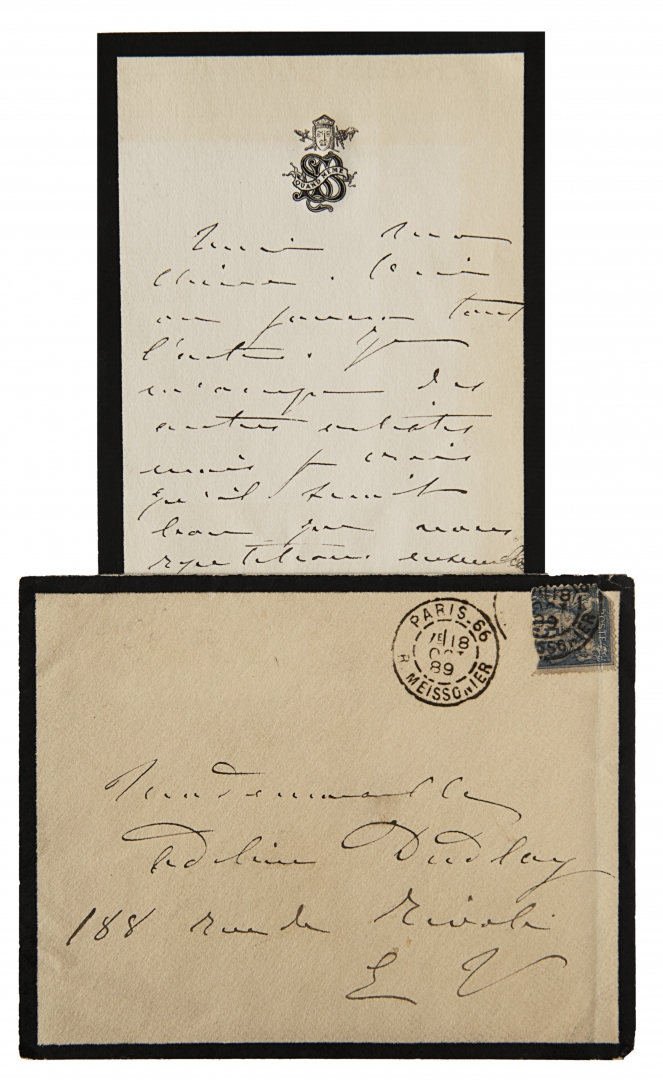 QUAND MEME
Merci ma
chérie.
on jouera tout
l'acte. Je
m'occupe des
autres artistes
mais je crois
qu'il serait
bon que nous
repetitions ensemble
PARIS-66
18
OCT
89
R. MEISSONIER
Mademoiselle
Adeline Dudlay
188 rue de Rivoli
E V